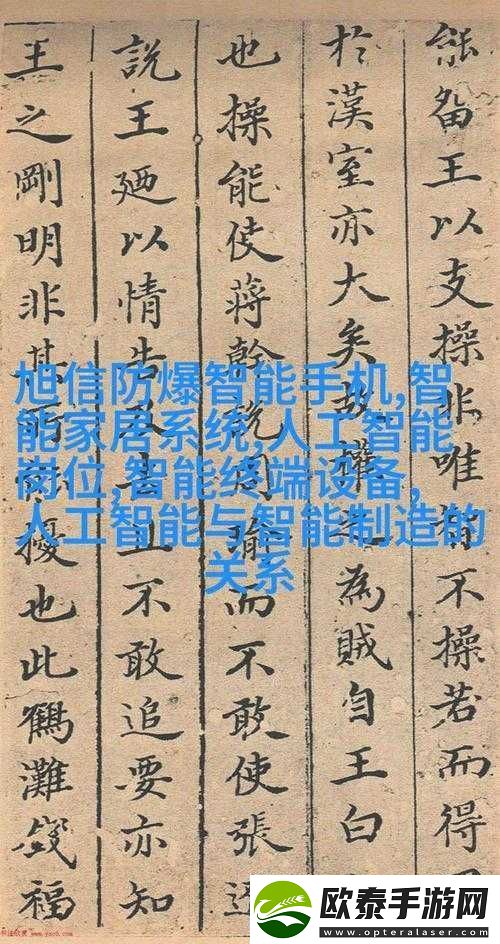 能畱王以支操非唯不操若而得
於漢室亦大矣故權為賊自王白
也操能使蔣幹說周瑜而不敢使張遼
說王廼以情告且不敢追要亦知
王之剛明非其所擾也此鶴灘錢福
旭信防爆智能手机,智
能家居系统,人工智能
岗位,智能终端设备,
人工智能与智能制造的
关系
欧泰手游网
www.opteralaser.com